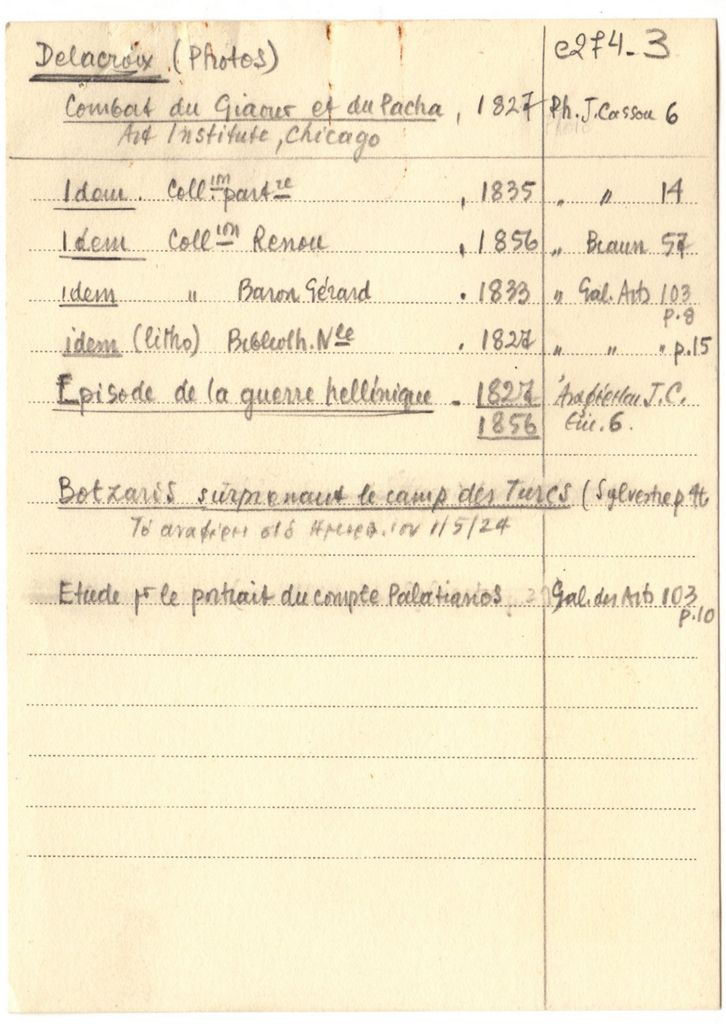 Delacroix (Photos) e274-3
Combat du Giaour et du Pacha, 1827 Ph. J. Cassou 6
Art Institute, Chicago
Idem. Coll.ion partre, 1835 " " 14
Idem Collion Renou, 1856 " Braun 57
idem " Baron Gérard . 1833 " Gal. Arts 103
p.8
idem (litho) Biblioth. Nle . 1827 " " " p.15
Episode de la guerre hellénique - 1827 J.C.
1856 6.
Botzaris surprenant le camp des Turcs (Sylvestre p.
Τό στό 1/5/24
Etude pr le portrait du compte Palatianos Gal. des Arts 103
p.10